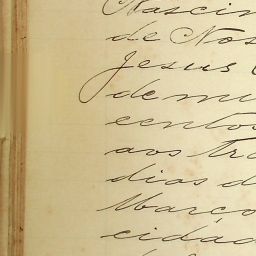 Nascim
de Nos
Jesus C
de mi
centos
aos tre
dias d
Março
cidad